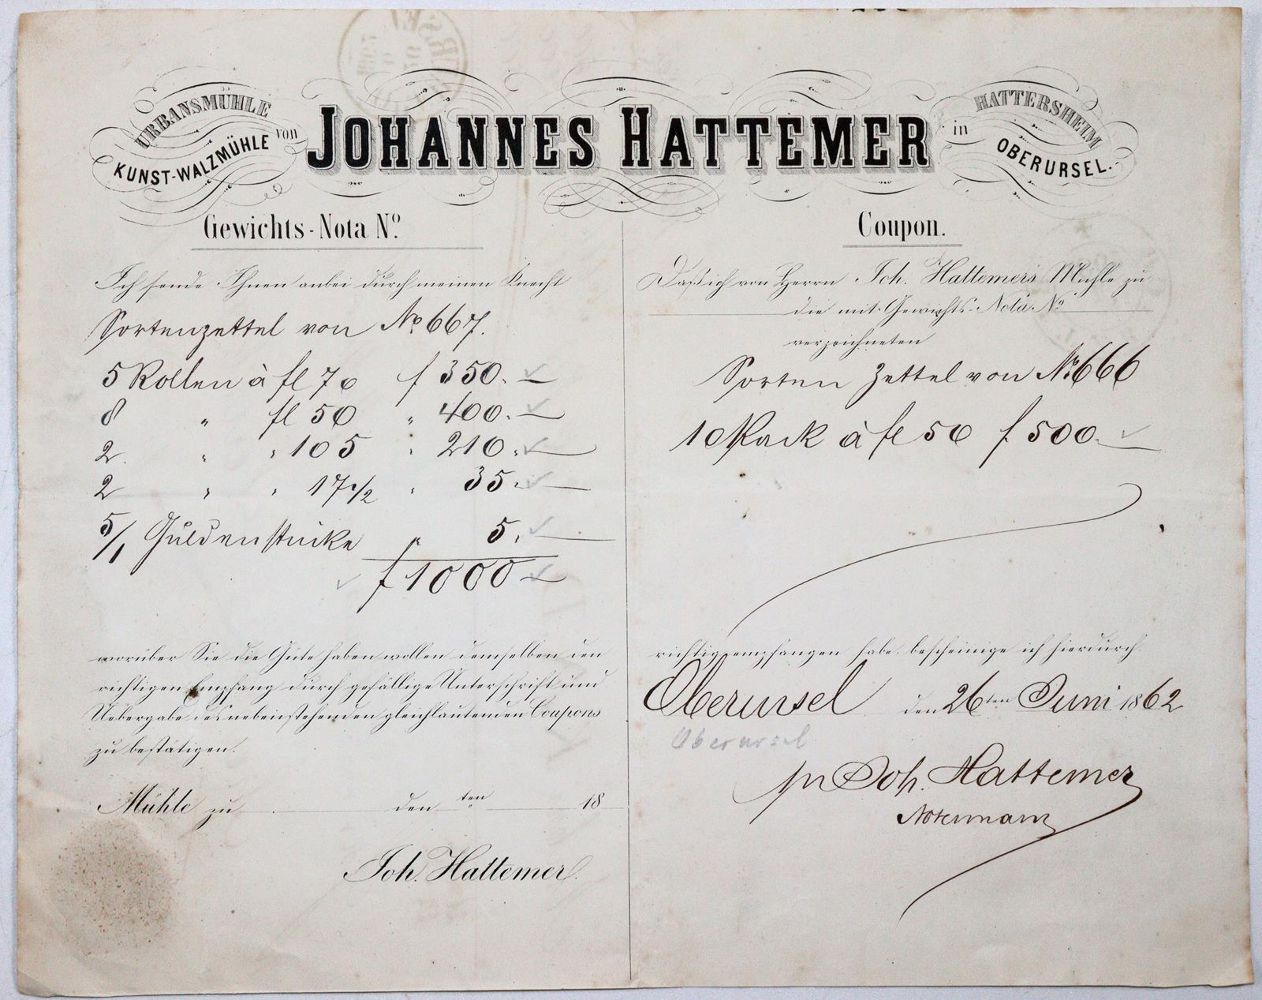 URBANSMÜHLE
KUNST-WALZMÜHLE
von
JOHANNES HATTEMER
in
HATTERSHEIM
OBERURSEL.
Gewichts-Nota Nº.
Ich sende Ihnen anbei durch meinen Knecht
Sortenzettel von Nº 667.
5 Rollen à fl 70 f 350. —
8 " fl 50 " 400. —
2 " " 105 " 210. —
2 " " 17 1/2 " 35. —
5/1 Guldenstücke " 5. —
f 1000 —
worüber Sie die Güte haben wollen demselben den
richtigen Empfang durch gefällige Unterschrift und
Uebergabe des nebenstehenden gleichlautenden Coupons
zu bestätigen.
Mühle zu den ten 18
Joh. Hattemer.
Coupon.
Daß ich von Herrn Joh. Hattemers Mühle zu
die mit Gewichts-Nota Nº
verzeichneten
Sorten Zettel von Nº 666
10 Pack à fl 50 f 500. —
richtig empfangen habe, bescheinige ich hierdurch
Oberursel den 26ten Juni 1862
Oberursel
pr Joh. Hattemer